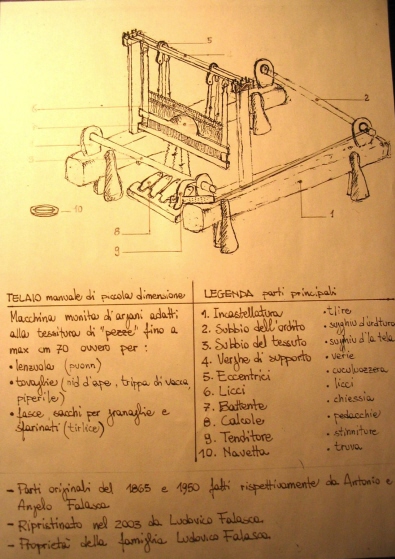 5
2
1
10
8
9
TELAIO manuale di piccola dimensione
Macchina munita di organi adatti
alla tessitura di "pezze" fino a
max cm 70 ovvero per:
• lenzuola (puonn)
• tovaglie (nid d'ape, trippa di vacca,
piperile)
• fasce, sacchi per granaglie e
sfarinati (tirlicc)
LEGENDA parti principali
1. Incastellatura • tlire
2. Subbio dell'ordito
3. Subbio del tessuto
4. Verghe di supporto • verie
5. Eccentrici
6. Licci • licci
7. Battente • chiessia
8. Calcole • pedacchie
9. Tenditore • stinniture
10. Navetta • truva
- Parti originali del 1865 e 1950 fatti rispettivamente da Antonio e
Angelo Falasca
- Ripristinato nel 2003 da Ludovico Falasca
- Proprietà della famiglia Ludovico Falasca